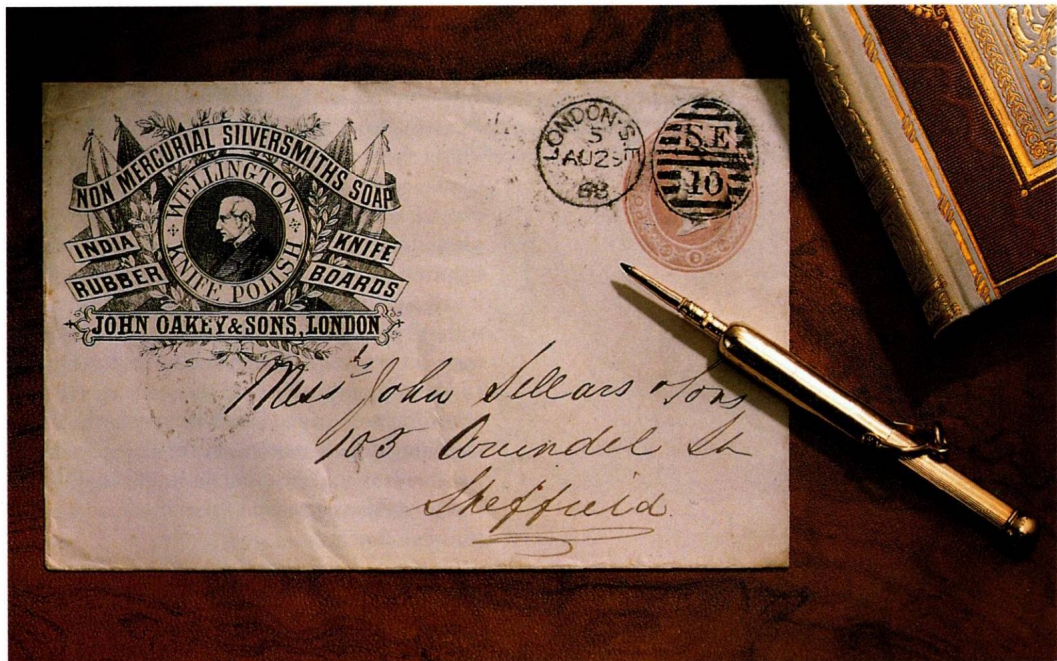 NON MERCURIAL SILVERSMITHS SOAP
WELLINGTON
KNIFE POLISH
INDIA RUBBER
KNIFE BOARDS
JOHN OAKEY & SONS, LONDON
LONDON·S.E
5
AU25
68
S.E
10
Messrs John Sellars & Sons
105 Arundel St
Sheffield